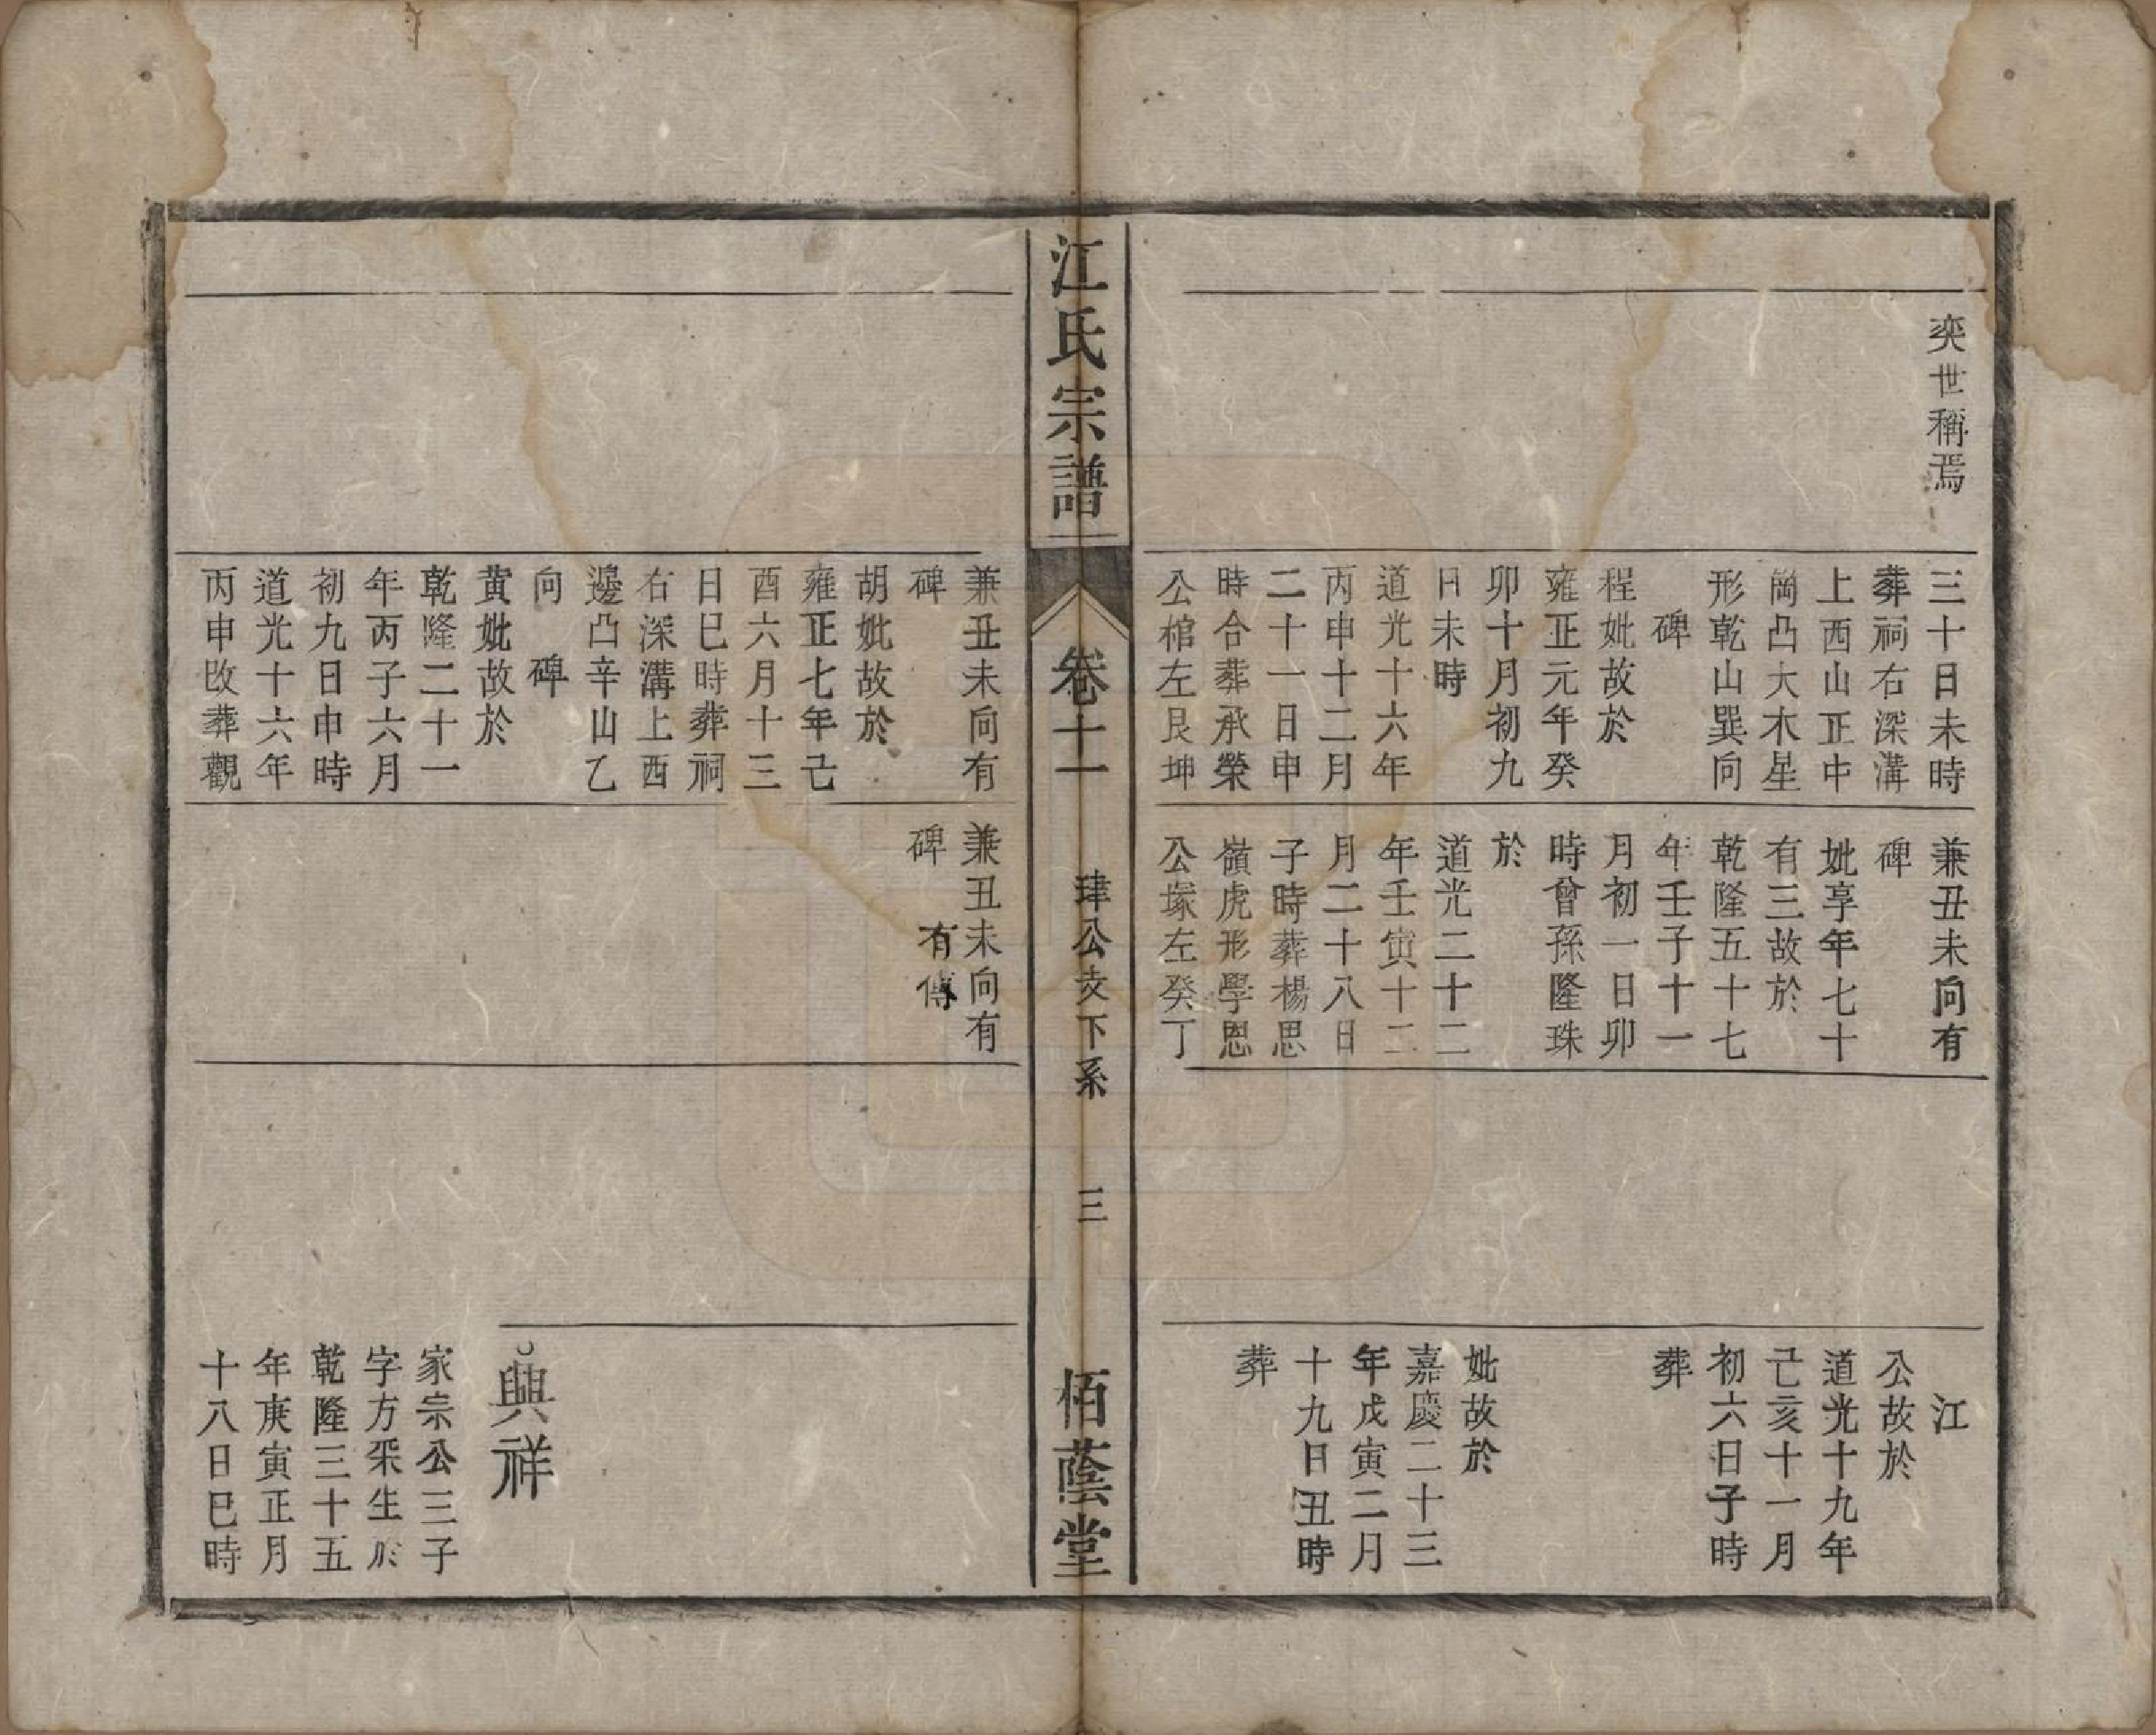 奕世稱焉
三十日未時
葬祠右深溝
上西山正中
崗凸大木星
形乾山巽向
碑
程妣故於
雍正元年癸
卯十月初九
日未時
道光十六年
丙申十二月
二十一日申
時合葬承榮
公棺左艮坤
兼丑未向有
碑
妣享年七十
有三故於
乾隆五十七
年壬子十一
月初一日卯
時曾孫隆珠
於
道光二十二
年壬寅十二
月二十八日
子時葬楊思
嶺虎形學恩
公塚左癸丁
江
公故於
道光十九年
己亥十一月
初六日子時
葬
妣故於
嘉慶二十三
年戊寅二月
十九日丑時
葬
江氏宗譜
卷十一
津公支下系
三
佰蔭堂
兼丑未向有
碑
胡妣故於
雍正七年己
酉六月十三
日巳時葬祠
右深溝上西
邊凸辛山乙
向　碑
黃妣故於
乾隆二十一
年丙子六月
初九日申時
道光十六年
丙申改葬觀
兼丑未向有
碑　有傳
興祥
家宗公三子
字方采生於
乾隆三十五
年庚寅正月
十八日巳時